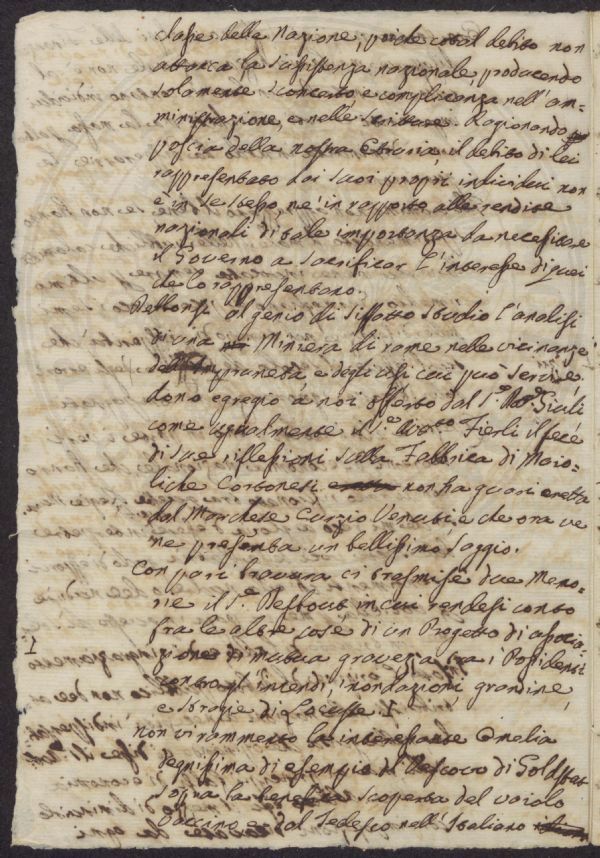 classe della Nazione; poiche cotal debito non
attacca la sussistenza nazionale, producendo
solamente sconcerto e complicanza nell'am-
ministrazione, e nelle scritture. Ragionando
poscia della nostra Etruria, il debito di lei
rappresentato dai suoi propri individui non
è in se stesso ne' in rapporto alle rendite
nazionali di tale importanza da necessitare
il Governo a sacrificar l'interesse di quei
che lo rappresentano.
al genio di siffatto studio l'analisi
di una Miniera di rame nelle vicinanze
dell'Impruneta, e degli usi cui può servire
dono egregio a noi offerto dal S.r Giuli
come ugualmente il S.r Fierli il fece
di sue riflessioni sulla Fabbrica di Maio-
liche Cortonesi non ha guari eretta
dal Marchese Curzio Venuti, e che ora ve
ne presenta un bellissimo saggio.
Con pari bravura ci trasmise due Memo-
rie il S.r in cui rendesi conto
fra le altre cose di un Progetto di associa-
zione di mutua gravezza tra i Possidenti
contro gl'incendi, inondazioni, grandine,
e stragi di
1
non vi rammento la interessante Omelia
degnissima di esempio del Vescovo di
sopra la benefica scoperta del vaiolo
vaccino e dal Tedesco nell'Italiano